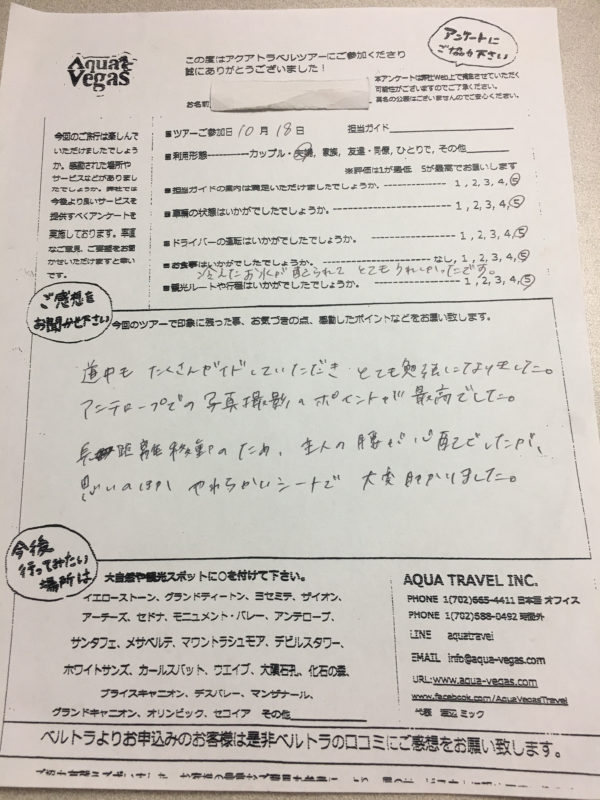 Aqua Vegas
この度はアクアトラベルツアーにご参加くださり
誠にありがとうございました！
アンケートに
ご協力下さい
本アンケートは弊社Web上で掲載させていただく
可能性がございますのでご了承ください。
お名前
■ツアーご参加日 10月 18日 担当ガイド
■利用形態-----------カップル・夫婦, 家族, 友達・同僚, ひとりで, その他
※評価は1が最低 5が最高でお願いします
■担当ガイドの案内は満足いただけましたでしょうか。 1, 2, 3, 4, 5
■車輛の状態はいかがでしたでしょうか。 1, 2, 3, 4, 5
■ドライバーの運転はいかがでしたでしょうか。 1, 2, 3, 4, 5
■お食事はいかがでしたでしょうか。 なし, 1, 2, 3, 4, 5
冷えたお水が配られて とてもうれしかったです。
■観光ルートや行程はいかがでしたでしょうか。 1, 2, 3, 4, 5
今回のご旅行は楽しんで
いただけましたでしょう
か。感動された場所や
サービスなどがありまし
たでしょうか。弊社では
今後より良いサービスを
提供すべくアンケートを
実施しております。率直
なご意見、ご要望をお聞
かせいただけますと幸い
です。
ご感想を
お聞かせ下さい
今回のツアーで印象に残った事、お気づきの点、感動したポイントなどをお願い致します。
道中も たくさんガイドしていただき とても勉強になりました。
アンテロープでの写真撮影のポイントが最高でした。
長距離移動のため、主人の腰が心配でしたが、
思いのほか やわらかいシートで 大変助かりました。
今後
行ってみたい
場所は
大自然や観光スポットに○を付けて下さい。
イエローストーン、グランドティートン、ヨセミテ、ザイオン、
アーチーズ、セドナ、モニュメント・バレー、アンテロープ、
サンタフェ、メサベルデ、マウントラシュモア、デビルスタワー、
ホワイトサンズ、カールスバット、ウエイブ、大隕石孔、化石の森、
ブライスキャニオン、デスバレー、マンザナール、
グランドキャニオン、オリンピック、セコイア その他
AQUA TRAVEL INC.
PHONE 1(702)665-4411 日本語 オフィス
PHONE 1(702)688-0492 時間外
LINE aquatravel
EMAIL info@aqua-vegas.com
URL:www.aqua-vegas.com
www.facebook.com/AquaVegasTravel
代表 渡辺 ミック
ベルトラよりお申込みのお客様は是非ベルトラの口コミにご感想をお願い致します。